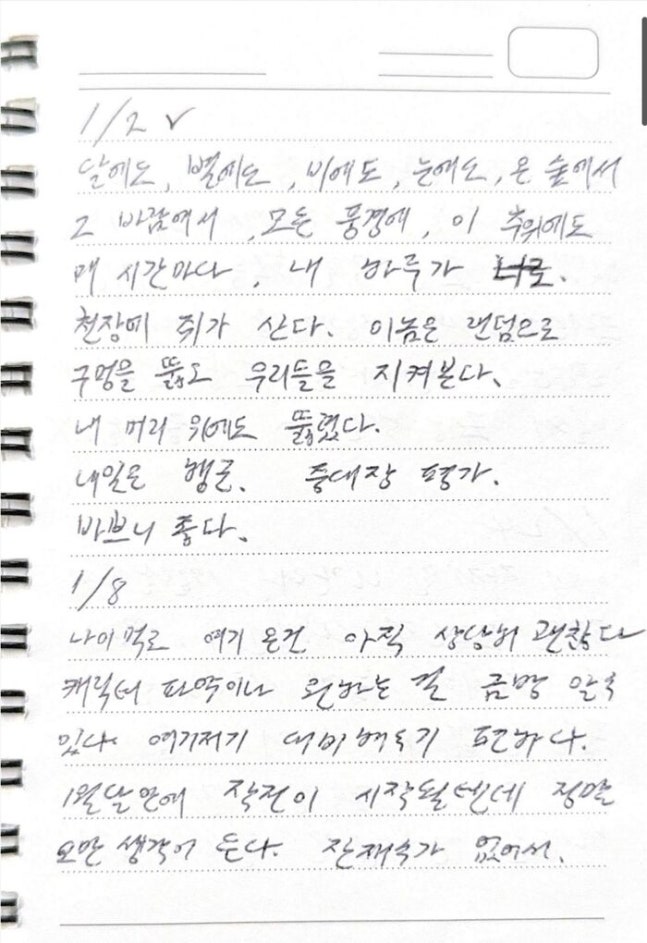 1/2 ✓
달에도, 별에도, 비에도, 눈에도, 온 숲에서
그 바람에서, 모든 풍경에, 이 추위에도
매 시간마다, 내 하루가 너로.
천장에 쥐가 산다. 이놈은 랜덤으로
구멍을 뚫고 우리들을 지켜본다.
내 머리 위에도 뚫렸다.
내일은 행군. 중대장 평가.
바쁘니 좋다.
1/8
나이 먹고 여기 온건 아직 상당히 괜찮다
캐릭터 파악이나 원하는 걸 금방 알수
있다. 여기저기 대비해두기 편하다.
1월달 안에 작전이 시작될텐데 정말
오만 생각이 든다. 잔재주가 없어서.